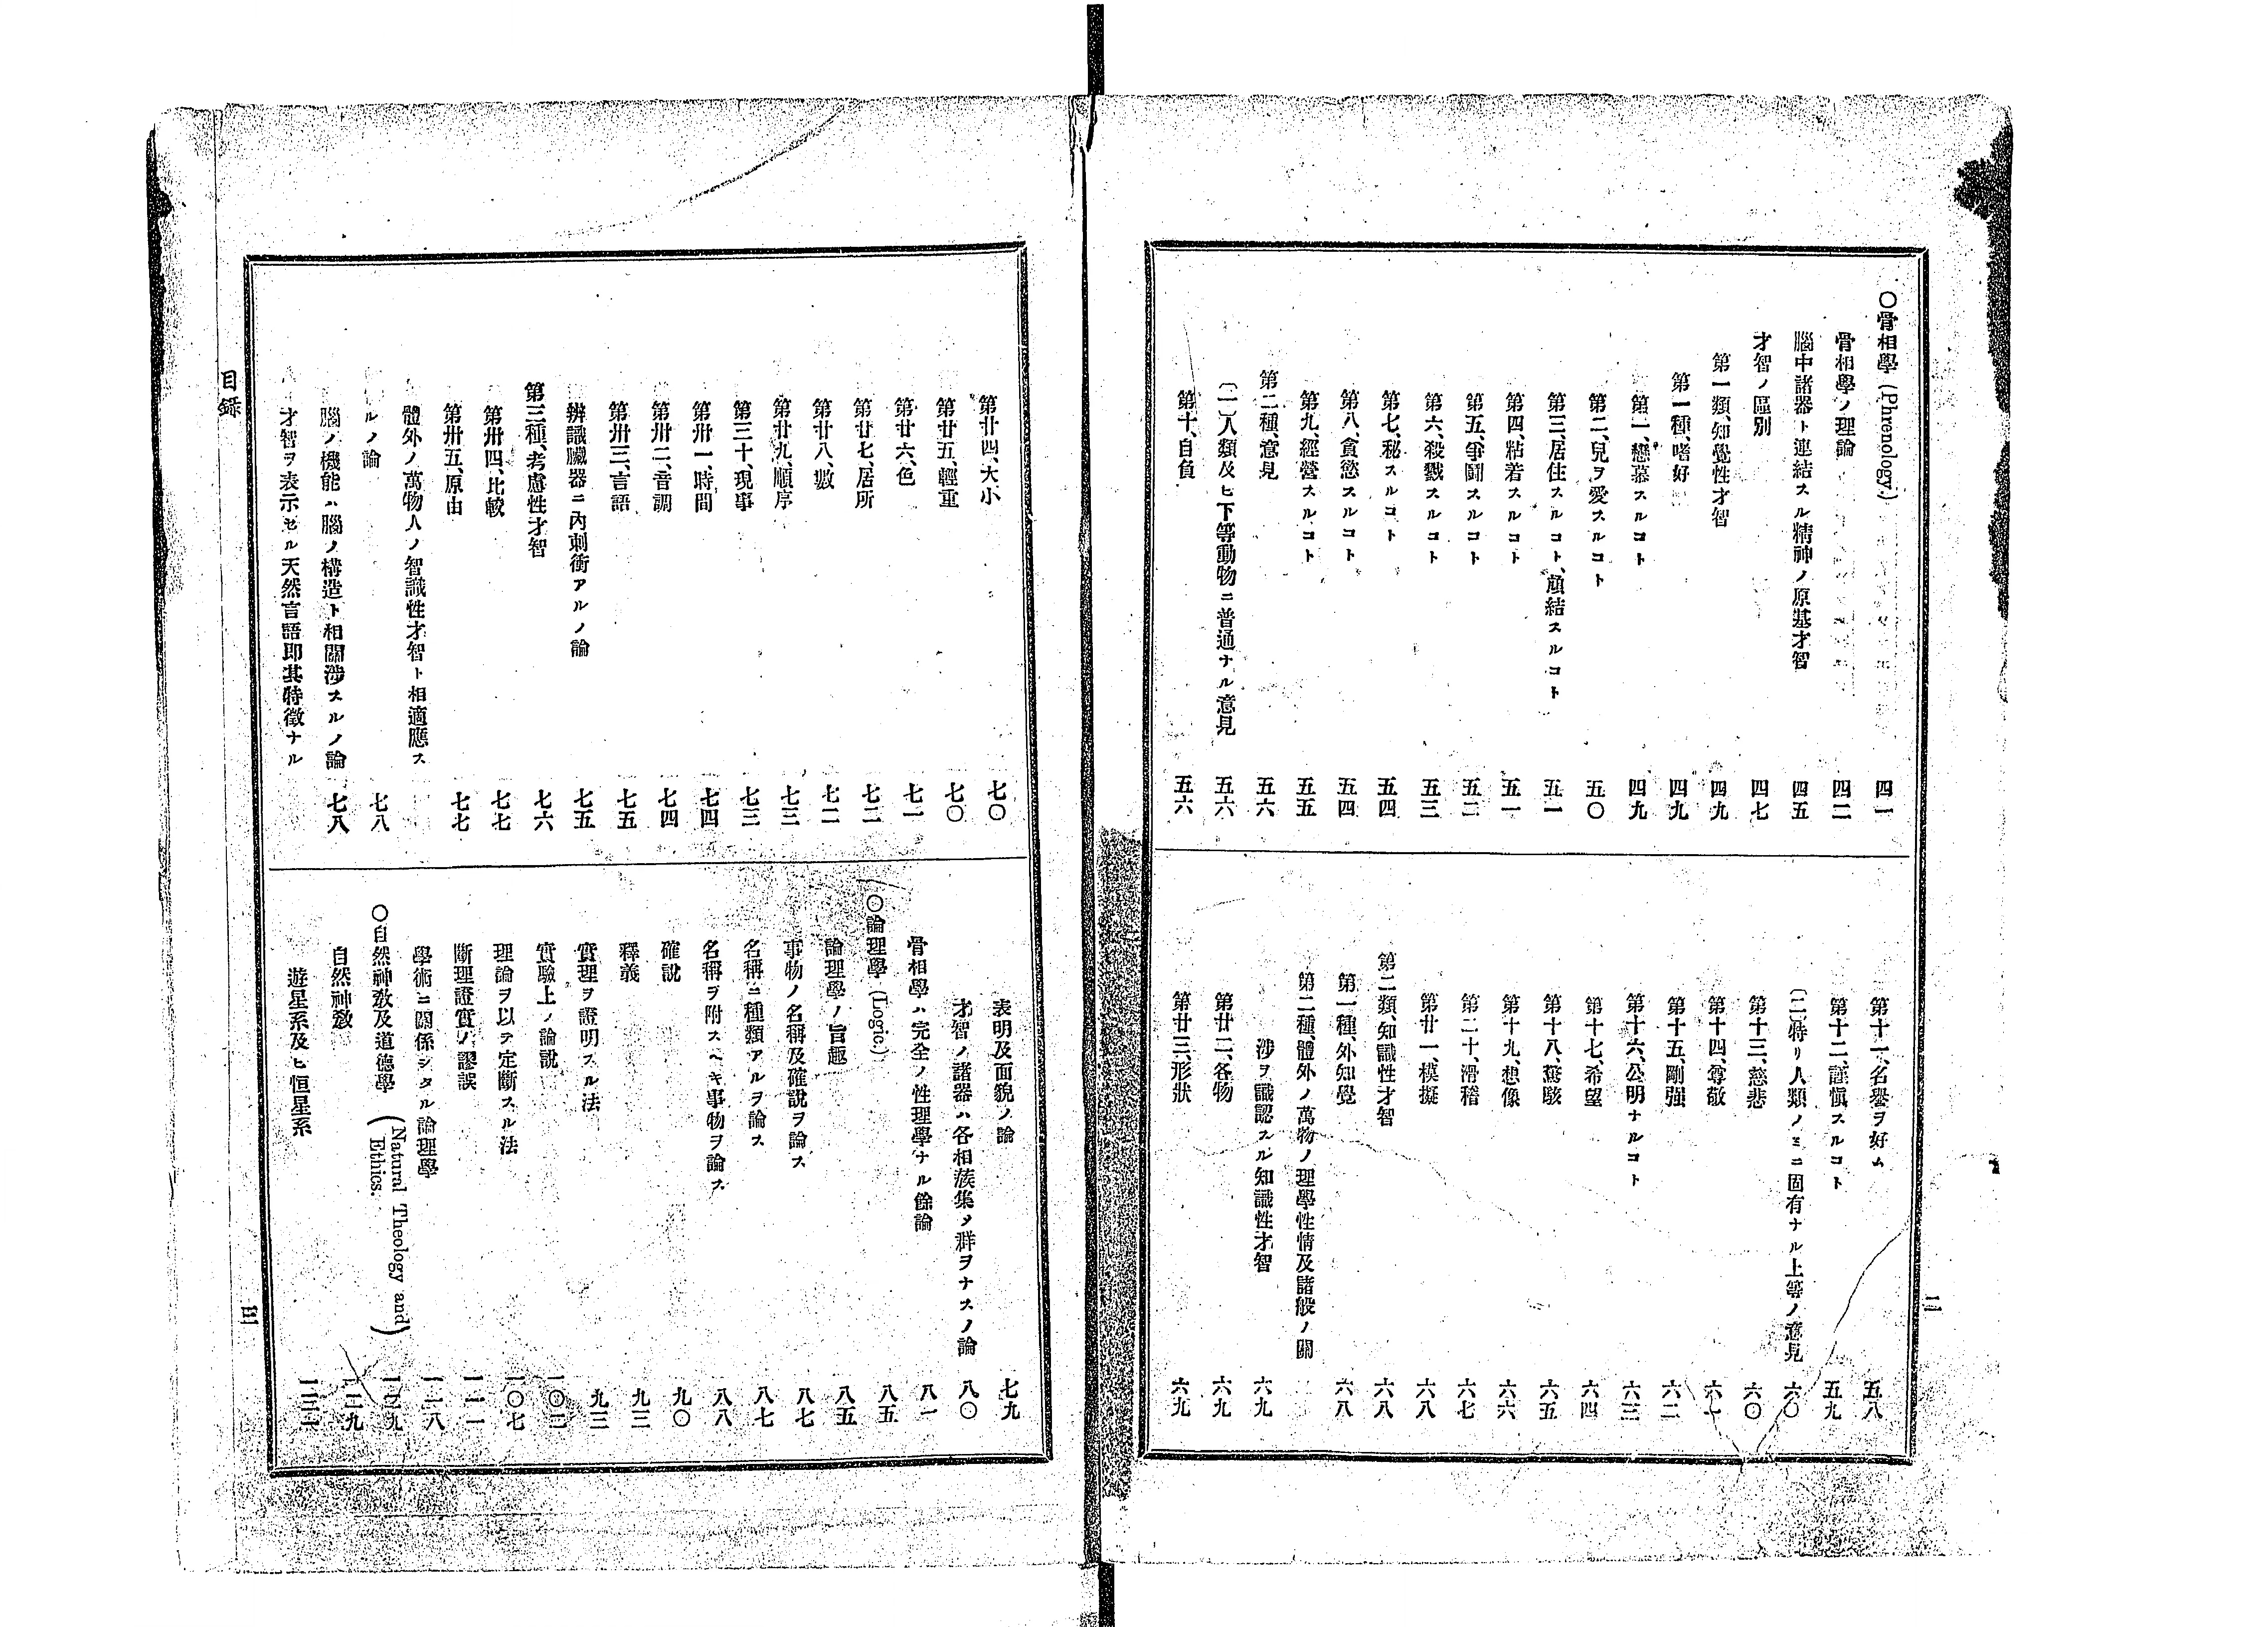 〇骨相學 (Phrenology.) 四一
骨相學ノ理論 四二
腦中諸器ト連結スル精神ノ原基才智 四五
才智ノ區別 四七
第一類、知覺性才智 四九
第一種、嗜好 四九
第一、戀慕スルコト 四九
第二、兒ヲ愛スルコト 五〇
第三、居住スルコト、頑結スルコト 五一
第四、粘若スルコト 五一
第五、爭鬪スルコト 五二
第六、殺戮スルコト 五三
第七、秘スルコト 五四
第八、貪慾スルコト 五四
第九、經營スルコト 五五
第二種、意見 五六
(一)人類及ヒ下等動物ニ普通ナル意見 五六
第十、自負 五六
第十一、名譽ヲ好ム 五八
第十二、謹愼スルコト 五九
(二)特リ人類ノミニ固有ナル上等ノ意見 六〇
第十三、慈悲 六〇
第十四、尊敬 六一
第十五、剛強 六二
第十六、公明ナルコト 六三
第十七、希望 六四
第十八、驚駭 六五
第十九、想像 六六
第二十、滑稽 六七
第廿一、模擬 六八
第二類、知識性才智 六八
第一種、外知覺 六八
第二種、體外ノ萬物ノ理學性情及諸般ノ關
涉ヲ識認スル知識性才智 六九
第廿二、各物 六九
第廿三、形狀 六九
二
第廿四、大小 七〇
第廿五、輕重 七〇
第廿六、色 七一
第廿七、居所 七二
第廿八、數 七二
第廿九、順序 七三
第三十、現事 七三
第卅一、時間 七四
第卅二、音調 七四
第卅三、言語 七五
辨識臟器ニ內刺衝アルノ論 七五
第三種、考慮性才智 七六
第卅四、比較 七七
第卅五、原由 七七
體外ノ萬物人ノ智識性才智ト相適應ス
ルノ論 七八
腦ノ機能ハ腦ノ構造ト相關涉スルノ論 七八
才智ヲ表示セル天然言語即其特徵ナル
表明及面貌ノ論 七九
才智ノ諸器ハ各相蔟集シ群ヲナスノ論 八〇
骨相學ハ完全ノ性理學ナル餘論 八一
〇論理學 (Logic.) 八五
論理學ノ旨趣 八五
事物ノ名稱及確說ヲ論ス 八七
名稱ニ種類アルヲ論ス 八七
名稱ヲ附スヘキ事物ヲ論ス 八八
確說 九〇
釋義 九三
實理ヲ證明スル法 九三
實驗上ノ論說 一〇二
理論ヲ以テ定斷スル法 一〇七
斷理證實ノ謬誤 一一一
學術ニ關係シタル論理學 一一八
〇自然神敎及道德學 (Natural Theology and Ethics.) 一二九
自然神敎 一二九
遊星系及ヒ恒星系
目錄
三